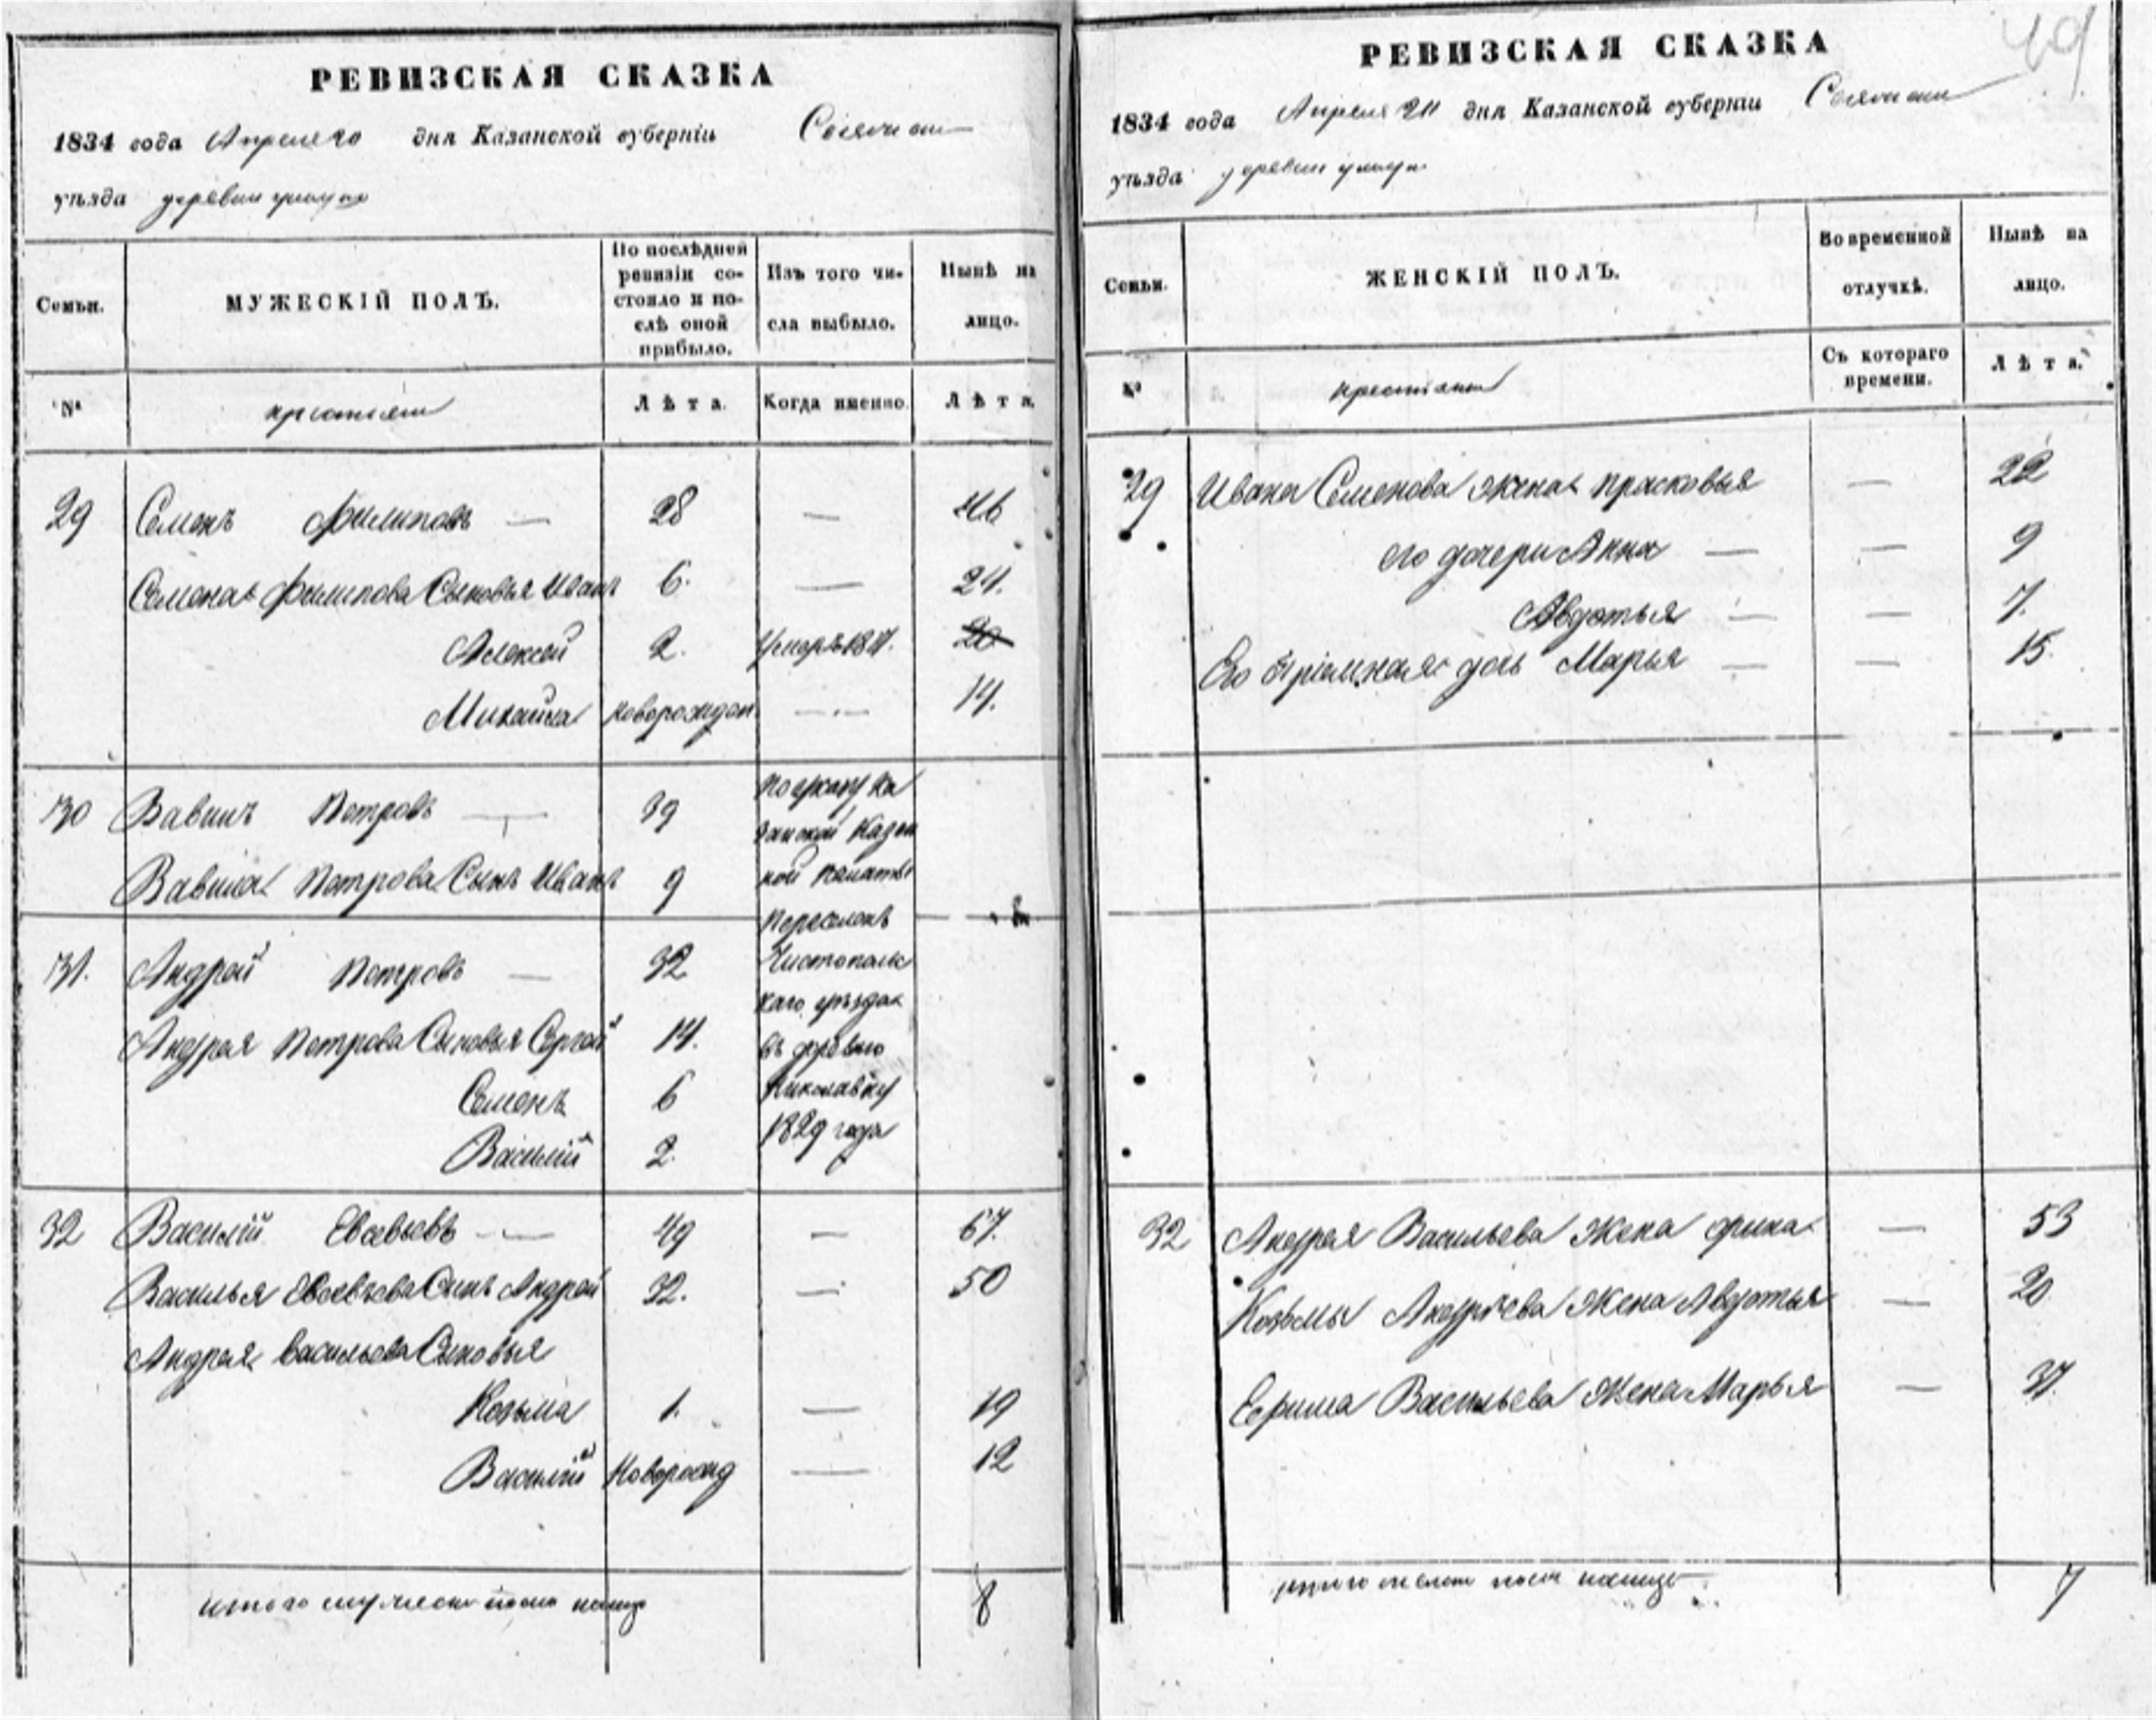 РЕВИЗСКАЯ СКАЗКА
1834 года Апреля 20 дня Казанской губерніи
уѣзда деревни
Семьи.
МУЖЕСКІЙ ПОЛЪ.
По послѣдней ревизіи состояло и послѣ оной прибыло.
Изъ того числа выбыло.
Нынѣ на лицо.
№
крестьяне
Лѣта.
Когда именно.
Лѣта.
29 Семенъ Филиповъ — 28 — 46
Семена Филипова Сыновья Иванъ 6. — 24.
Алексей 2. Умеръ 20
Михайла новорожден — 14.
30 Вавилъ Петровъ — 39
Вавила Петрова Сынъ Иванъ 9
По указу Ка
занской Казен
ной палаты
переселенъ
Чистополь
каго уѣзда
въ деревню
Николавку
1829 года
31. Андрей Петровъ — 32
Андрея Петрова Сыновья Сергей 14.
Семенъ 6
Василій 2.
32 Василій Евсевьевъ — 49 — 67.
Василья Евсевьева Сынъ Андрей 32. — 50
Андрея Васильева Сыновья
Козьма 1. — 19
Василій Новорожд — 12
итого мужеска пола налицо 8
49
РЕВИЗСКАЯ СКАЗКА
1834 года Апреля дня Казанской губерніи
уѣзда деревни
Семьи.
ЖЕНСКІЙ ПОЛЪ.
Во временной отлучкѣ.
Нынѣ на лицо.
№
крестьяне
Съ котораго времени.
Лѣта.
29 Ивана Семенова жена Прасковья — 22
его дочери Анна — — 9
Авдотья — — 7.
Его Пріемная дочь Марья — — 15.
32 Андрея Васильева Жена — 53
Козьмы Андреева Жена Авдотья — 20
Ефима Васильева Жена Марья — 37.
итого женска пола налицо 7